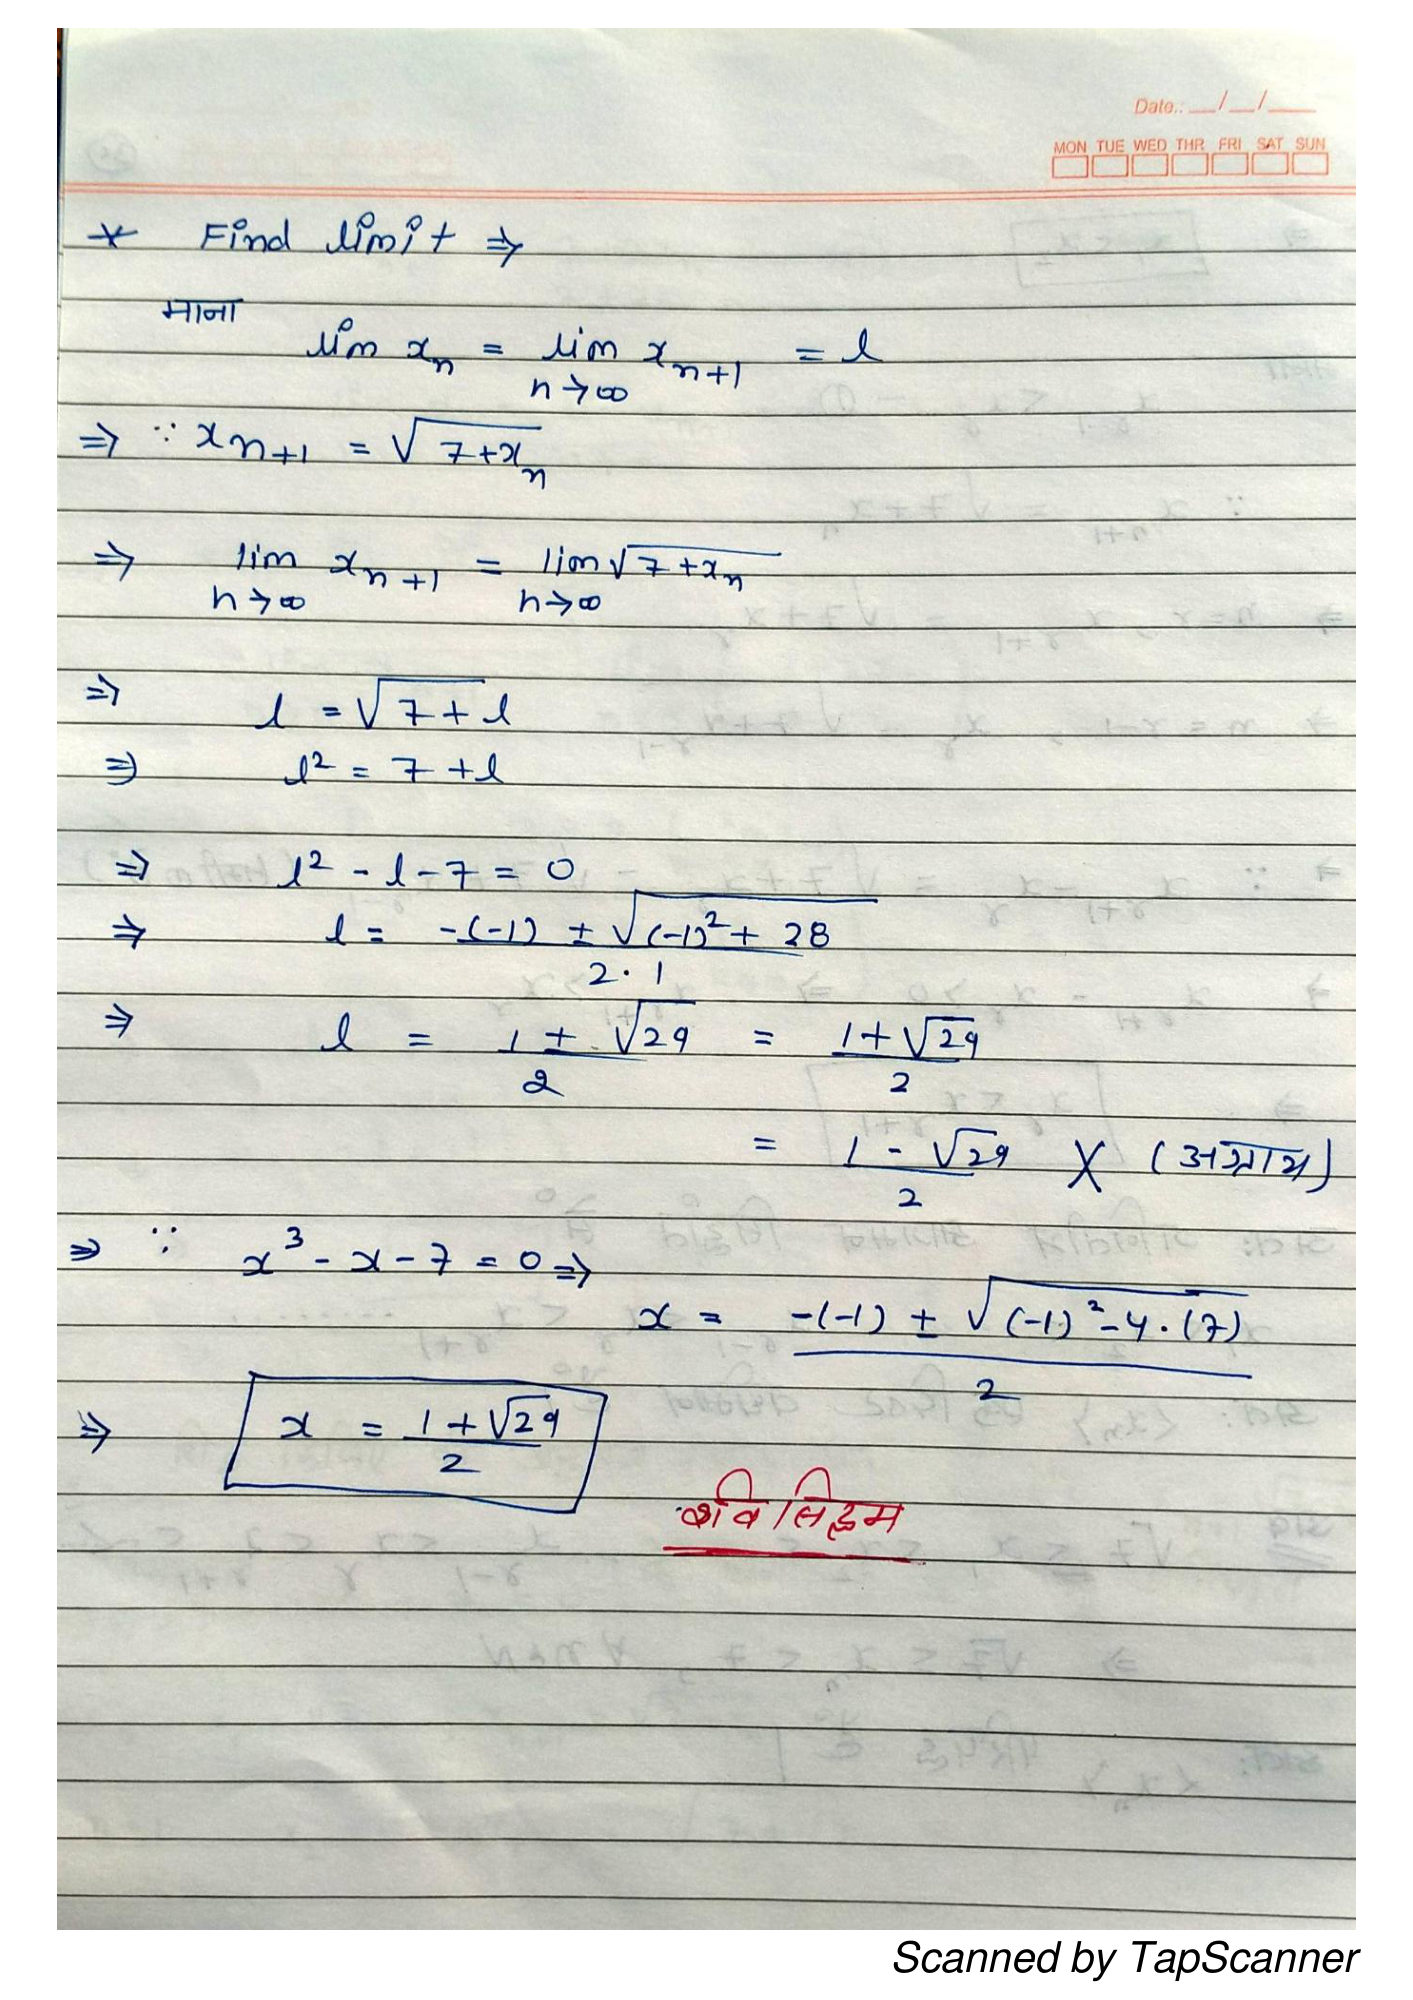 Date.: __/__/___
MON TUE WED THR FRI SAT SUN
* Find limit ⇒
माना
lim xₙ = lim xₙ₊₁ = l
n→∞
⇒ ∵ xₙ₊₁ = √(7+xₙ)
⇒ lim xₙ₊₁ = lim √(7+xₙ)
n→∞ n→∞
⇒ l = √(7+l)
⇒ l² = 7+l
⇒ l² - l - 7 = 0
⇒ l = -(-1) ± √((-1)² + 28)
2·1
⇒ l = 1 ± √29 = 1+√29
2 2
= 1 - √29 X (अग्राह्य)
2
⇒ ∵ x³ - x - 7 = 0 ⇒
x = -(-1) ± √((-1)² - 4·(7))
2
⇒ x = 1+√29
2
Scanned by TapScanner